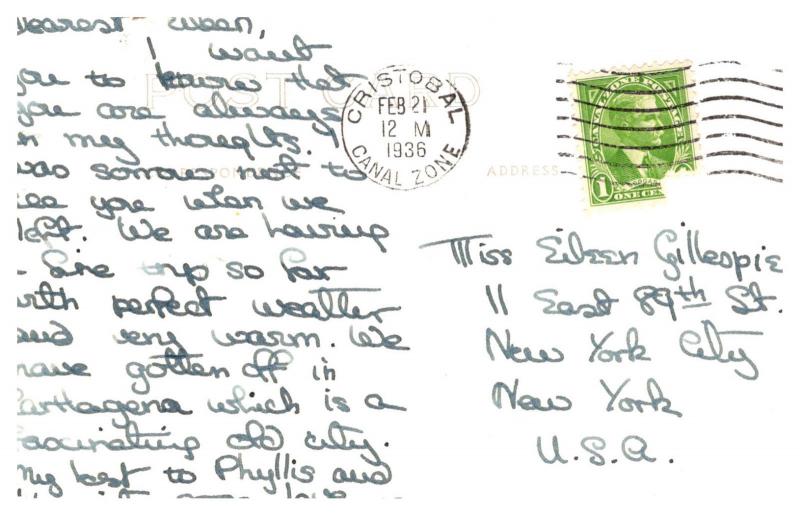 Dearest Eileen,
I want
you to know that
you are always
in my thoughts. I
was sorrow not to
see you when we
left. We are having
a fine trip so far
with perfect weather
and very warm. We
have gotten off in
Carthagena which is a
fascinating old city.
My best to Phyllis and
love
POST CARD
CORRESPONDENCE
ADDRESS
CRISTOBAL
FEB 21
12 M
1936
CANAL ZONE
CANAL ZONE POSTAGE
1
ONE CENT
Miss Eileen Gillespie
11 East 89th St.
New York City
New York
U.S.A.